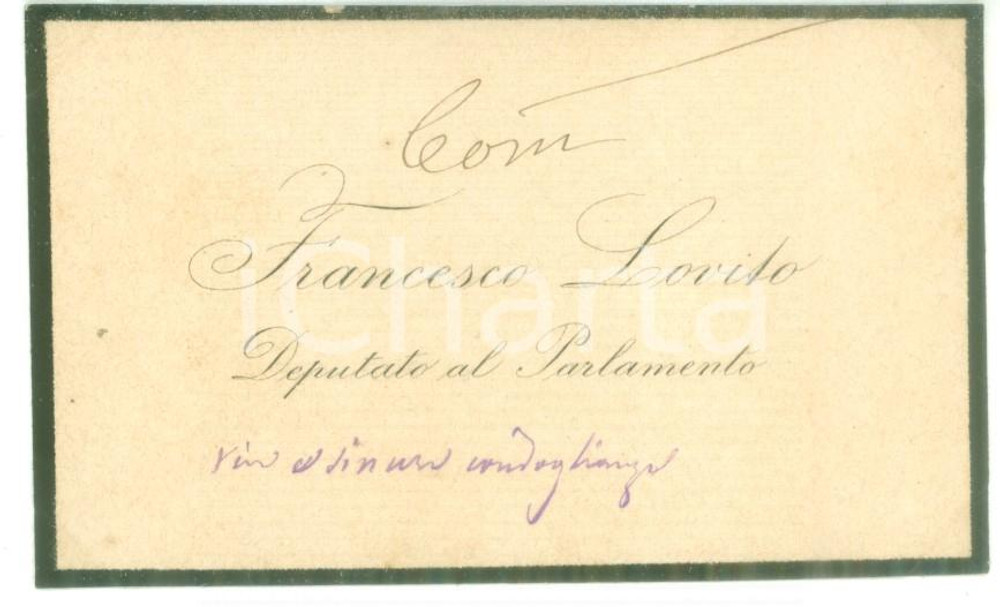 Com
Francesco Lovito
Deputato al Parlamento
vive e sincere condoglianze
iCharta